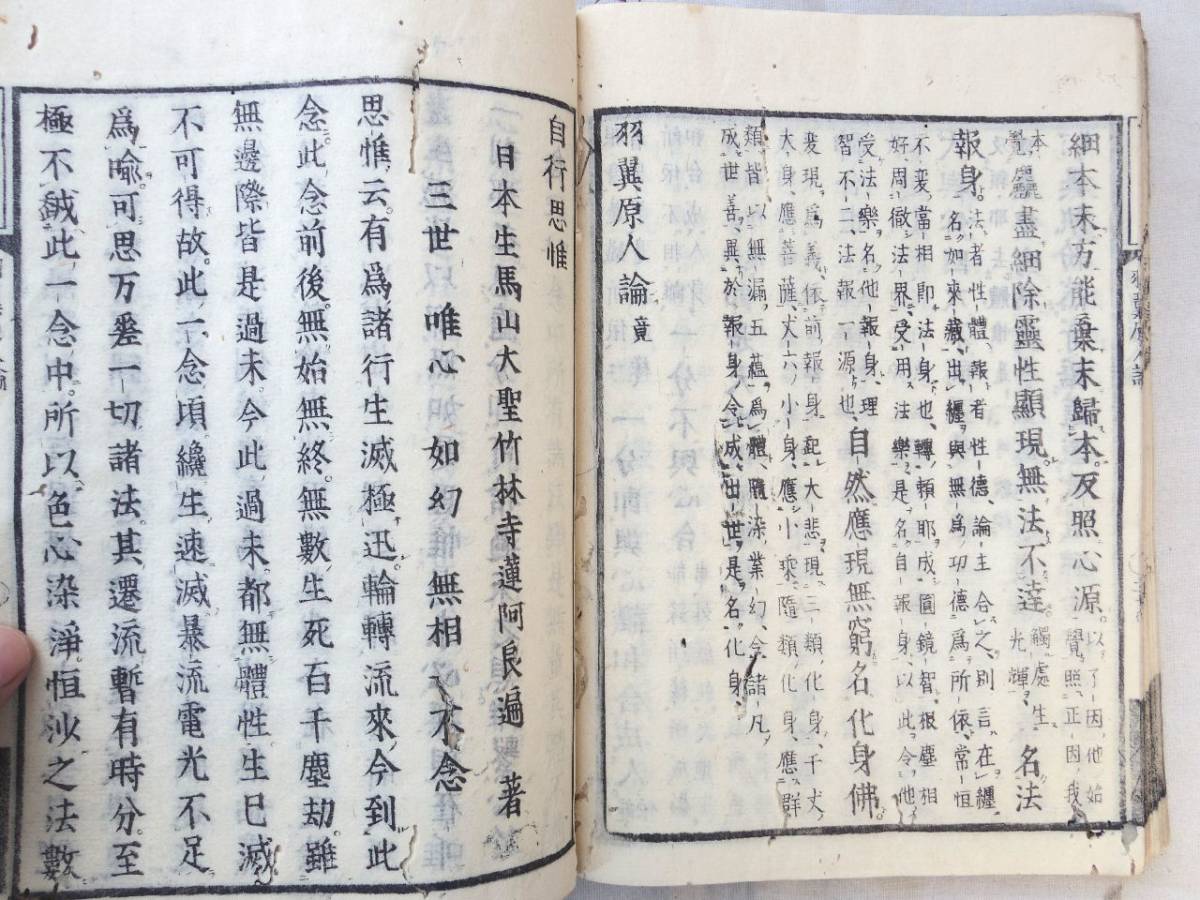 細本末方能棄末歸本反照心源以了因他始
覺照正因我
本覺麤盡細除靈性顯現無法不達觸處生
光輝名法
報身法者性體報者性德論主合之別言在纏
名如來藏出纏與無爲功德爲所依常恒
不變當相即法身也轉頼耶成圓鏡智报塵相
好周徹法界受用法樂是名自報身以此令他
受法樂名他報身理
智不二法報一源也自然應現無窮名化身佛
爲義依前報身起大悲現三類化身千丈
大身應菩薩丈六小身應小乘隨類化身應群
類皆以無漏五蘊爲體隨染業幻令諸凡
成世善異於報身令成出世是名化身
羽翼原人論竟
羽翼原人論
自行思惟
日本生馬山大聖竹林寺蓮阿良遍 著
三世 唯心 如幻 無相 不念
思惟云有爲諸行生滅極迅輪轉流來今到此
念此念前後無始無終無數生死百千塵劫雖
無邊際皆是過未今此過未都無體性生已滅
不可得故此一念頃纔生速滅暴流電光不足
爲喻可思万差一切諸法其遷流暫有時分至
極不誠此一念中所以色心染淨恒沙之法數